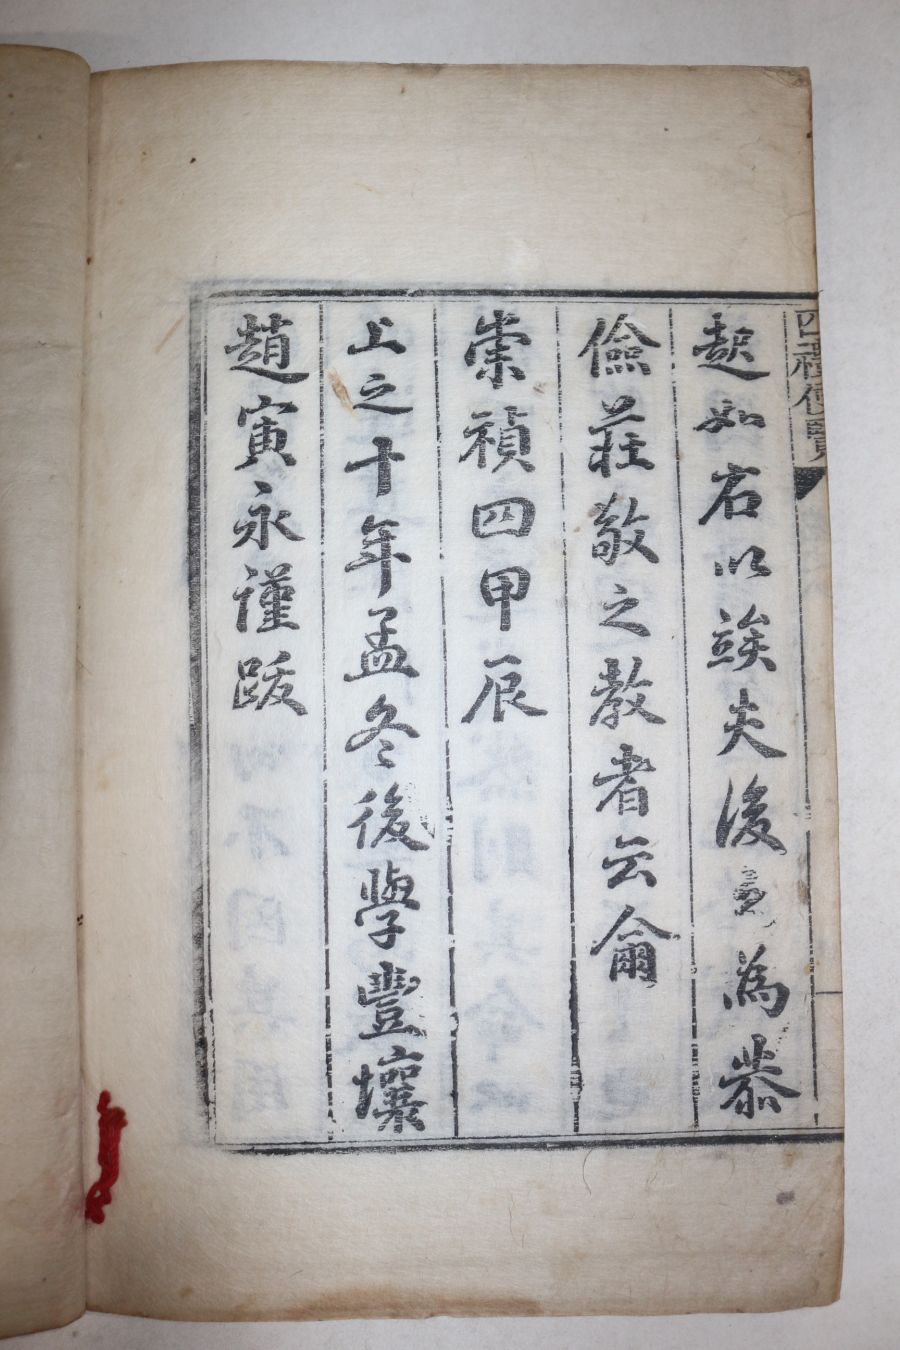 四禮便覽
起如右以竢夫後之為恭
儉莊敬之教者云爾
崇禎四甲辰
上之十年孟冬後學豐壤
趙寅永謹跋